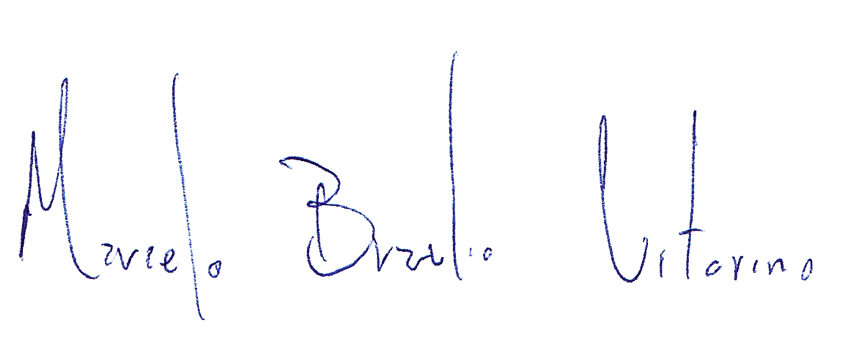 Marcelo Brazilio Vitorino